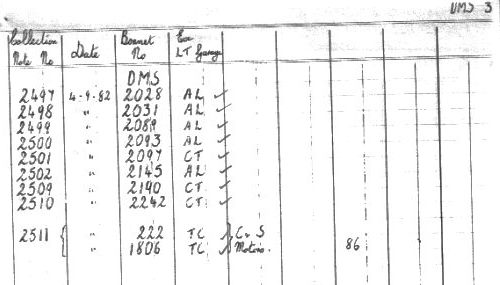 DMS 3
Collection Date Bonnet Ex
Note No No LT Garage
DMS
2497 4-9-82 2028 AL ✓
2498 " 2031 AL ✓
2499 " 2089 AL ✓
2500 " 2093 AL ✓
2501 " 2097 CT ✓
2502 " 2145 AL ✓
2509 " 2190 CT ✓
2510 " 2242 CT ✓
2511 { " 222 TC ✓ } C & S
" 1806 TC ✓ Motors. 86